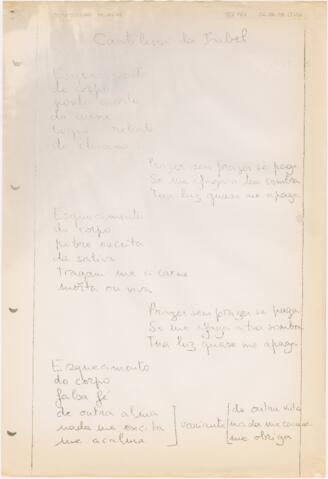 Cantilena da Isabel
Esquecimento
do corpo
ponto morto
da carne
Prazer sem prazer se paga
Se me afaga a tua sombra
Tua luz quase me apaga
Esquecimento
do corpo
pobre excita
da saliva
tragam me a carne
morta ou viva
Prazer sem prazer se paga
Se me afaga a tua sombra
Tua luz quase me apaga
Esquecimento
do corpo
falsa fé
de outra alma
nada me excita
me acalma
variante
de outra vida
nada me
me obriga